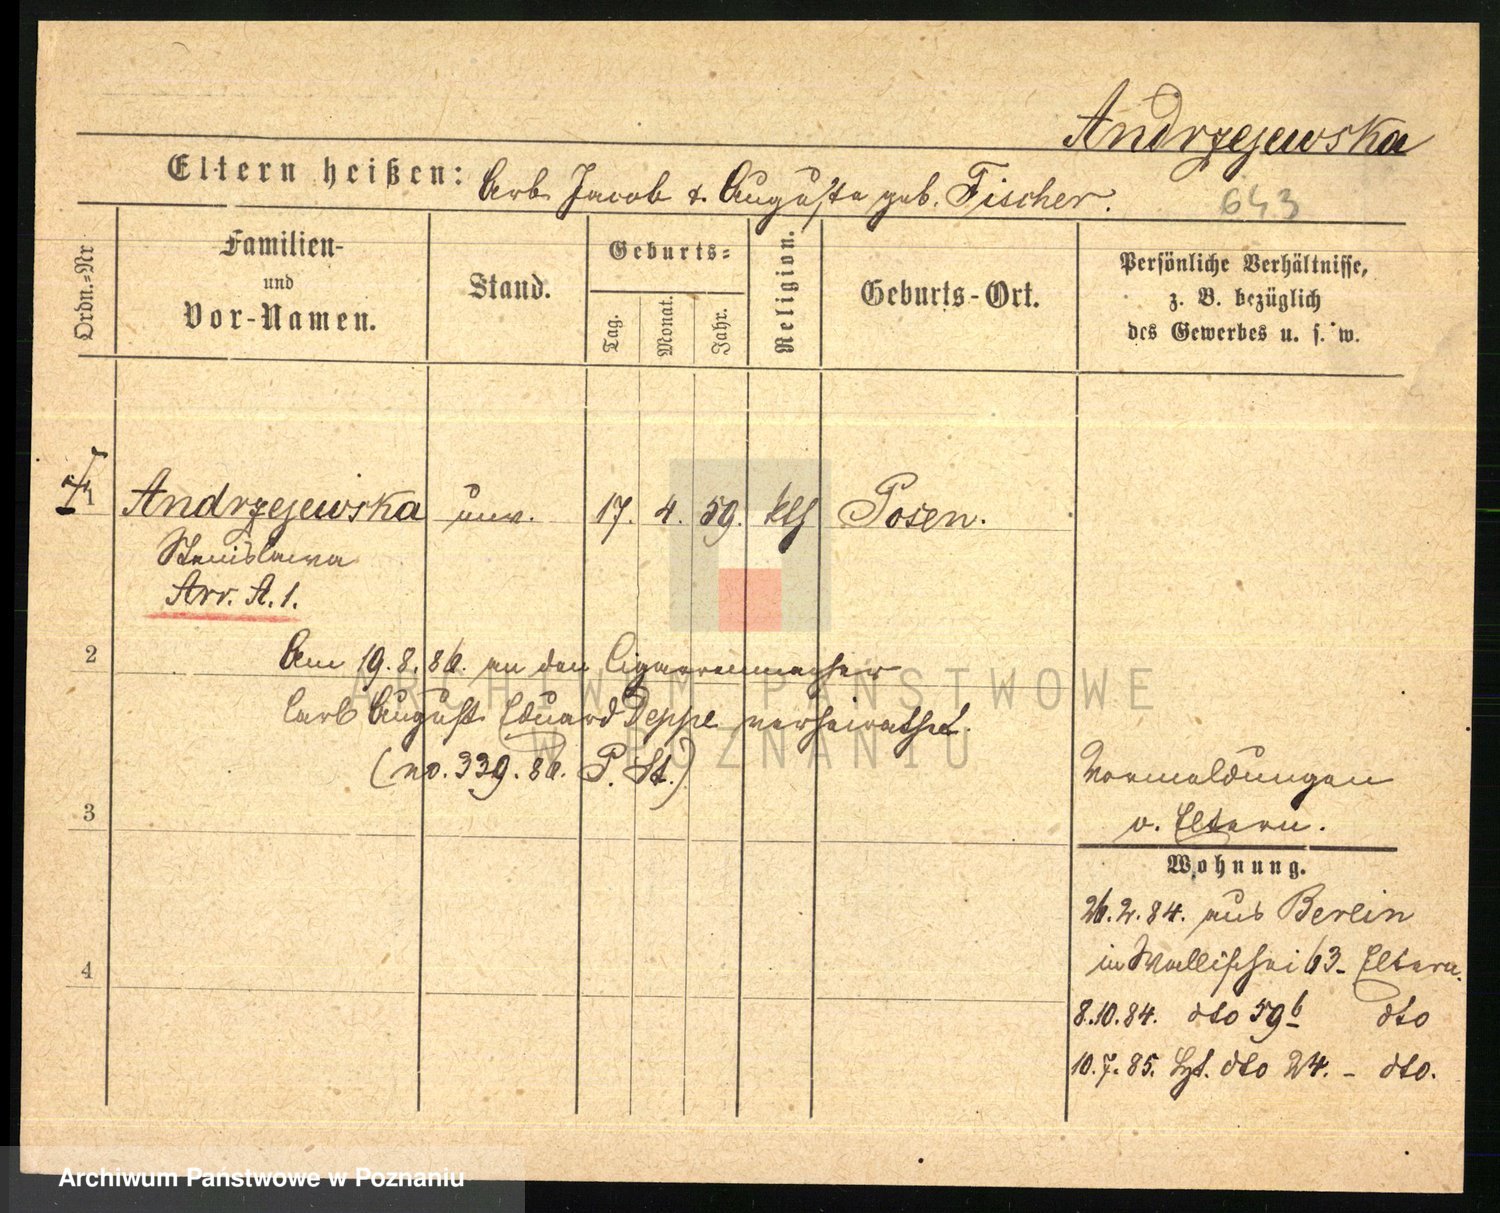 Andrzejewska
Eltern heißen: Arb. Jacob & Auguste geb. Fischer.
643
Ordn.=Nr
Familien-
und
Vor-Namen.
Stand.
Geburts=
Tag.
Monat.
Jahr.
Religion.
Geburts-Ort.
Persönliche Verhältnisse,
z. B. bezüglich
des Gewerbes u. s. w.
1 Andrzejewska unv. 17. 4. 59. klh Posen.
Stanislawa
Arr. A. 1.
2
Am 19.8.86. an den Cigarrenmacher
Carl August Eduard Deppe verheirathet.
(no. 339. 86. P. St.)
3
4
Vormeldungen
v. Eltern.
Wohnung.
26.2.84. aus Berlin
in Wallischei 63- Eltern.
8.10.84. dto 59b dto
10.7.85. dto 24. - dto.
ARCHIWUM PAŃSTWOWE
W POZNANIU
Archiwum Państwowe w Poznaniu